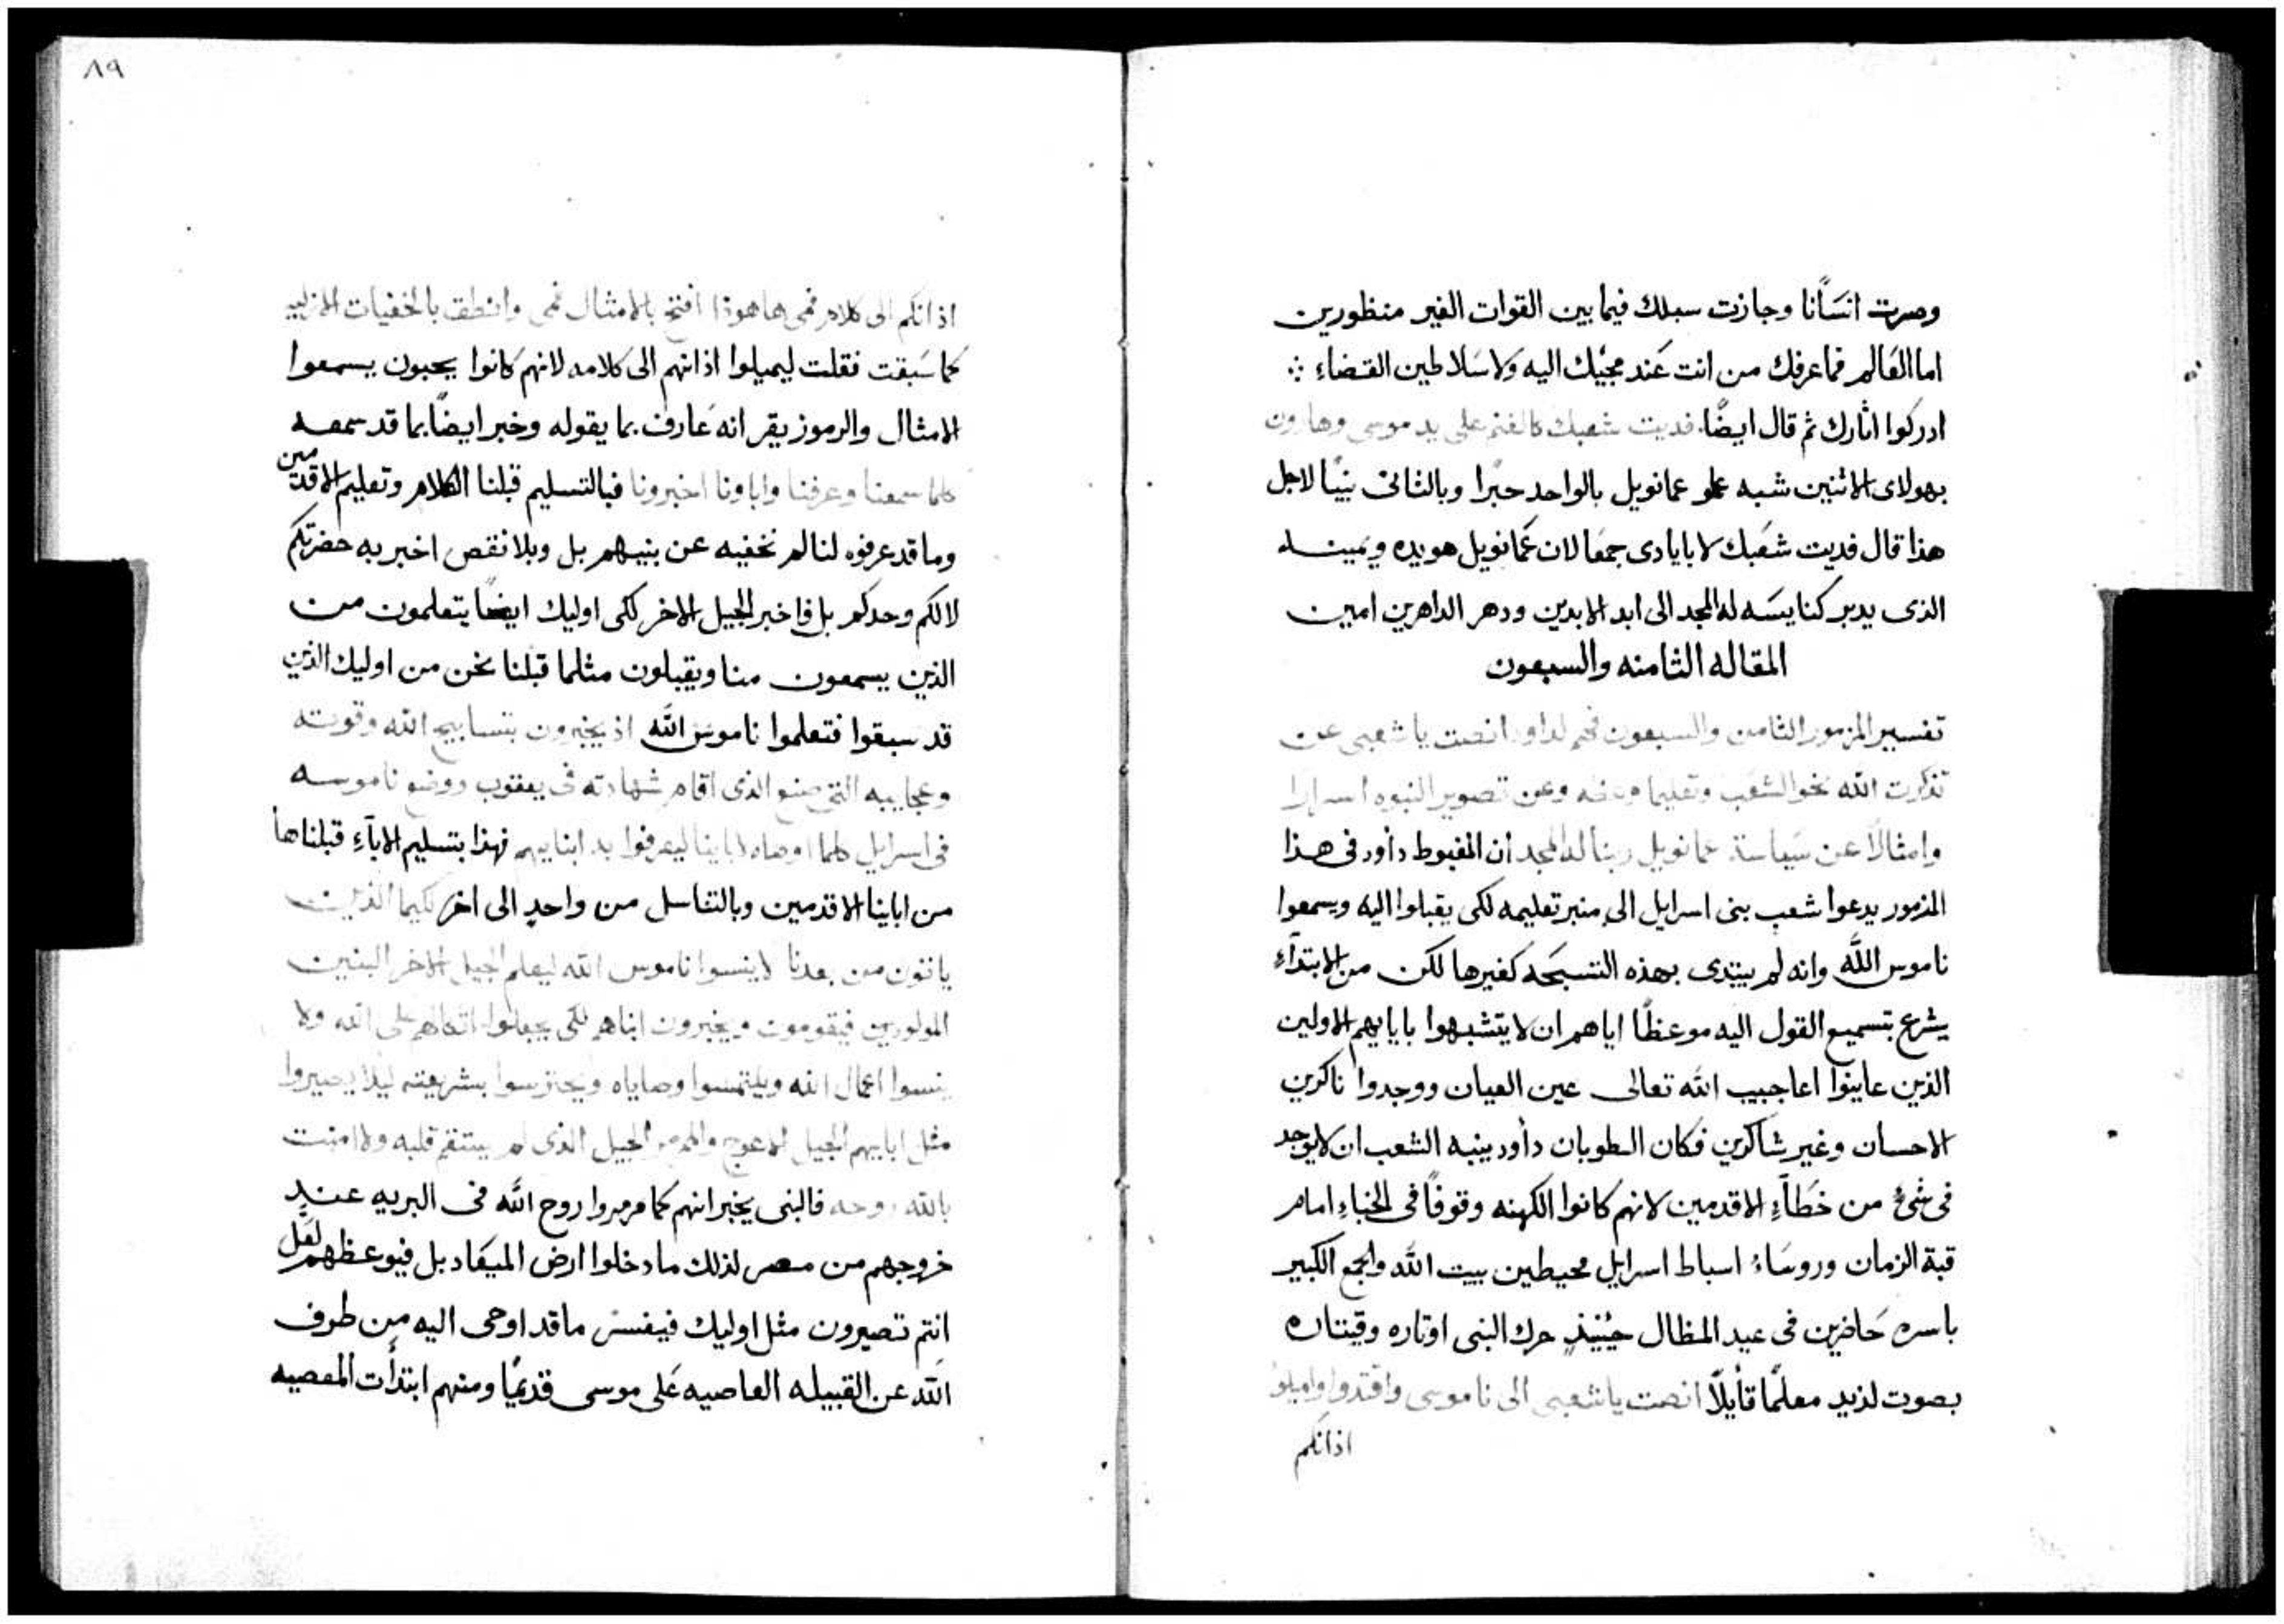 وصرت انسَانًا وجازت سبلك فيما بين القوات الغير منظورين
اما العَالم فما عرفك من انت عَند مجيئك اليه ولا سَلاطين القضاءِ
ادركوا اثارك ثم قال ايضًا. فديت شعبك كالغنم على يد موسى وهارون
بهولاى الاثنين شبه عمانويل بالواحد حبرا وبالثانى نبيًا لاجل
هذا قال فديت شعَبك لا بايادى جمعَا لان عَمانويل هو يده ويمينه
الذى يدبر كنايسَه له المجد الى ابد الابدين ودهر الداهرين امين
المقاله الثامنه والسبعون
تفسير المزمور الثامن والسبعون فهم لداود انصت يا شعبى عن
تذكرت الله نحو الشعَب وتعليما وعن تصوير النبوه اسرارا
وامثالًا عن سَياسة عمانويل ربنا له المجد أن المغبوط دأود فى هذا
المزمور يدعوا شعب بنى اسرايل الى منبر تعليمه لكى يقبلوا اليه ويسمعوا
ناموس اللّٰه وانه لم يبتدى بهذه التسبحَه كغيرها لكن من الابتدآءِ
يشرع بتسميع القول اليه موعظًا اياهم ان لا يتشبهوا بابايهم الاولين
الذين عاينوا اعاجيب اللّٰه تعالى عين العيان ووجدوا ناكرين
الاحسان وغير شاكرين فكان الطوبان دأود ينبه الشعب ان لا يوجد
فى شئ من خطَآءِ الاقدمين لانهم كانوا الكهنه وقوفًا فى الخباءِ امام
قبة الزمان وروسَاءُ اسباط اسرايل محيطين بيت اللّٰه والجمع الكبير
باسره حَاضرين فى عيد المظال حيُنيذٍ حرك النبى اوتاره وقيثاره
بصوت لذيد معلمًا قأيلًا انصت يا شعبى الى ناموسى وافتدوا واميلوا
اذانكم
٨٩
اذانكم الى كلام فمى ها هوذا افتح بالامثال فمى وانطق بالخفيات الازليه
كما سَبقت فقلت ليميلوا اذانهم الى كلامه لانهم كانوا يحبون يسمعوا
الامثال والرموز يقر انه عَارف بما يقوله وخبر ايضًا بما قد سمعه
كلما سمعنا وعرفنا واباونا اخبرونا فبالتسليم قبلنا الكلام وتعليم الاقدمين
وما قد عرفوه لنا لم نخفيه عن بنيهم بل وبلا نقص اخبر به حضرتكم
لا لكم وحدكم بل فاخبر الجيل الاخر لكى اوليك ايضًا يتعلمون من
الذين يسمعون منا ويقبلون مثلما قبلنا نحن من اوليك الذين
قد سبقوا فتعلموا ناموس اللّٰه اذ يخبرون بتسابيح الله وقوته
وعجايبه التى صنع الذى اقام شهادته فى يعقوب ووضع ناموسه
فى اسرايل كلما اوصاه لاباينا ليعرفوا به ابنايهم فهذا بتسليم الابآءِ قبلناها
من اباينا الاقدمين وبالتناسل من واحدٍ الى اخر لكيما الذين
ياتون من بعدنا لا ينسوا ناموس الله ليعلم الجيل الاخر البنين
المولودين فيقومون ويخبرون ابناهم لكى يجعلوا اتكالهم على الله ولا
ينسوا اعمال الله ويلتمسوا وصاياه ويحترسوا بشريعته ليلا يصيروا
مثل ابايهم الجيل الاعوج والمرمر الجيل الذى لم يستقم قلبه ولا امنت
بالله روحه فالنبى يخبر انهم كما مرمروا روح اللّٰه فى البريه عندٍ
خروجهم من مصر لذلك ما دخلوا ارض الميعَاد بل فيوعظهم لعَلَّ
انتم تصيرون مثل اوليك فيفسر ما قد اوحى اليه من طرف
اللّٰه عن القبيله العاصيه عَلى موسى قديمًا ومنهم ابتدأت المعصيه